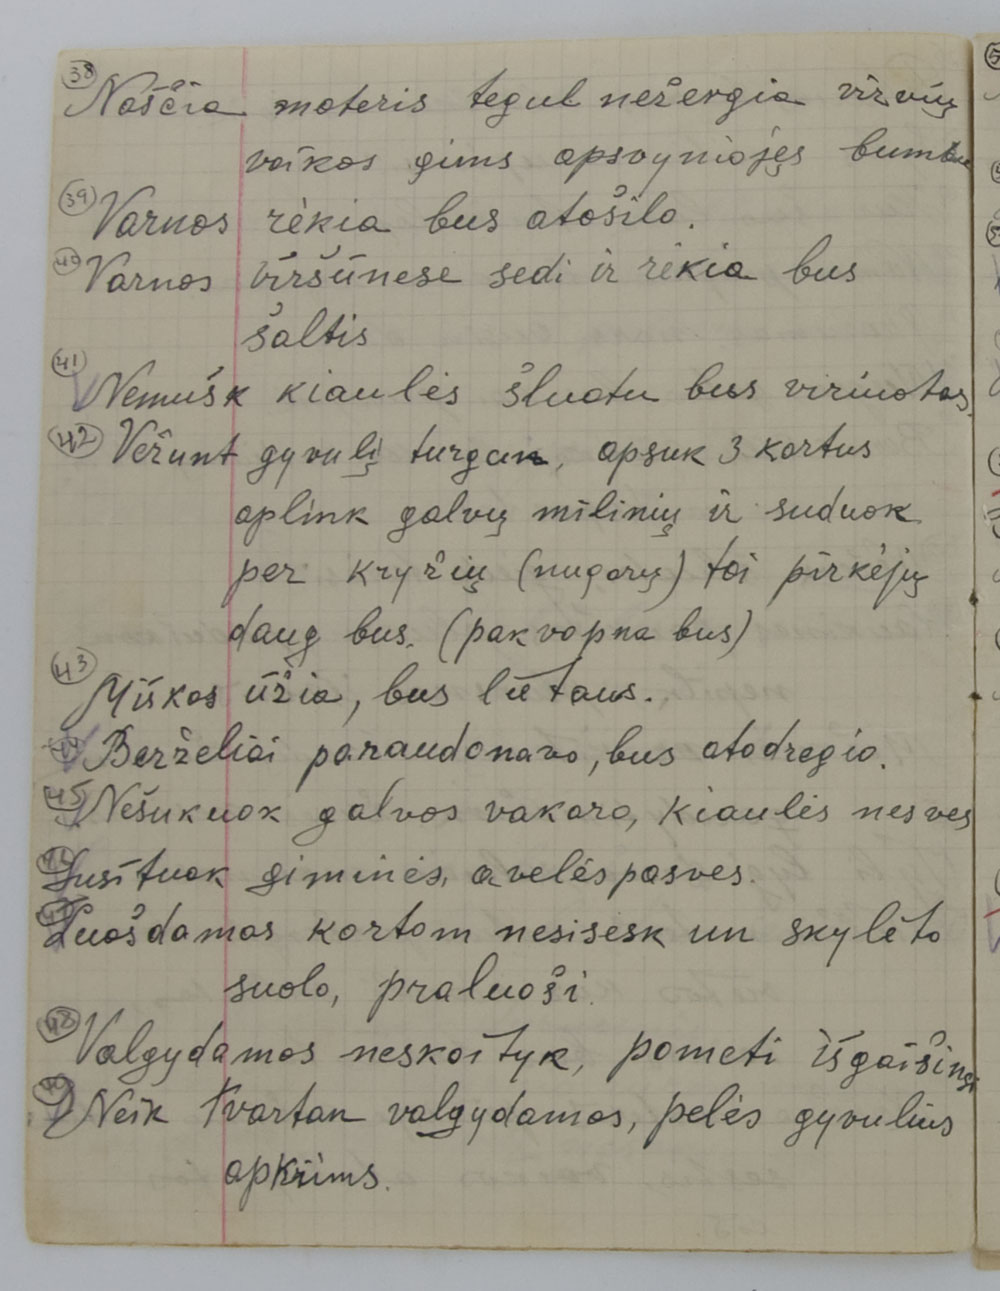 38 Noščia moteris tegul nežergia virvių
vaikas gims apsvyniojęs bumbu
39 Varnas rėkia bus atošilo.
40 Varnos viršūnese sedi ir rėkia bus
šaltis
41 Nemušk kiaulės šluotu bus viriuotas
42 Vežunt gyvulį turgun, apsuk 3 kartus
aplink galvų milinių ir suduok
per kryžių (nugarų) tai pirkėjų
daug bus. (pakvapna bus)
43 Miškas ūžia, bus lietaus.
44 Berželiai paraudonavo, bus atodregio.
45 Nešukuok galvos vakaro, kiaulės nesves
46 Susituok giminės, avelės pasves.
47 Luošdamas kortom nesisesk un skylėto
suolo, praluoši.
48 Valgydamas neskaityk, pometi išgaišinsi
49 Neik tvartan valgydamas, pelės gyvulius
apkrims.